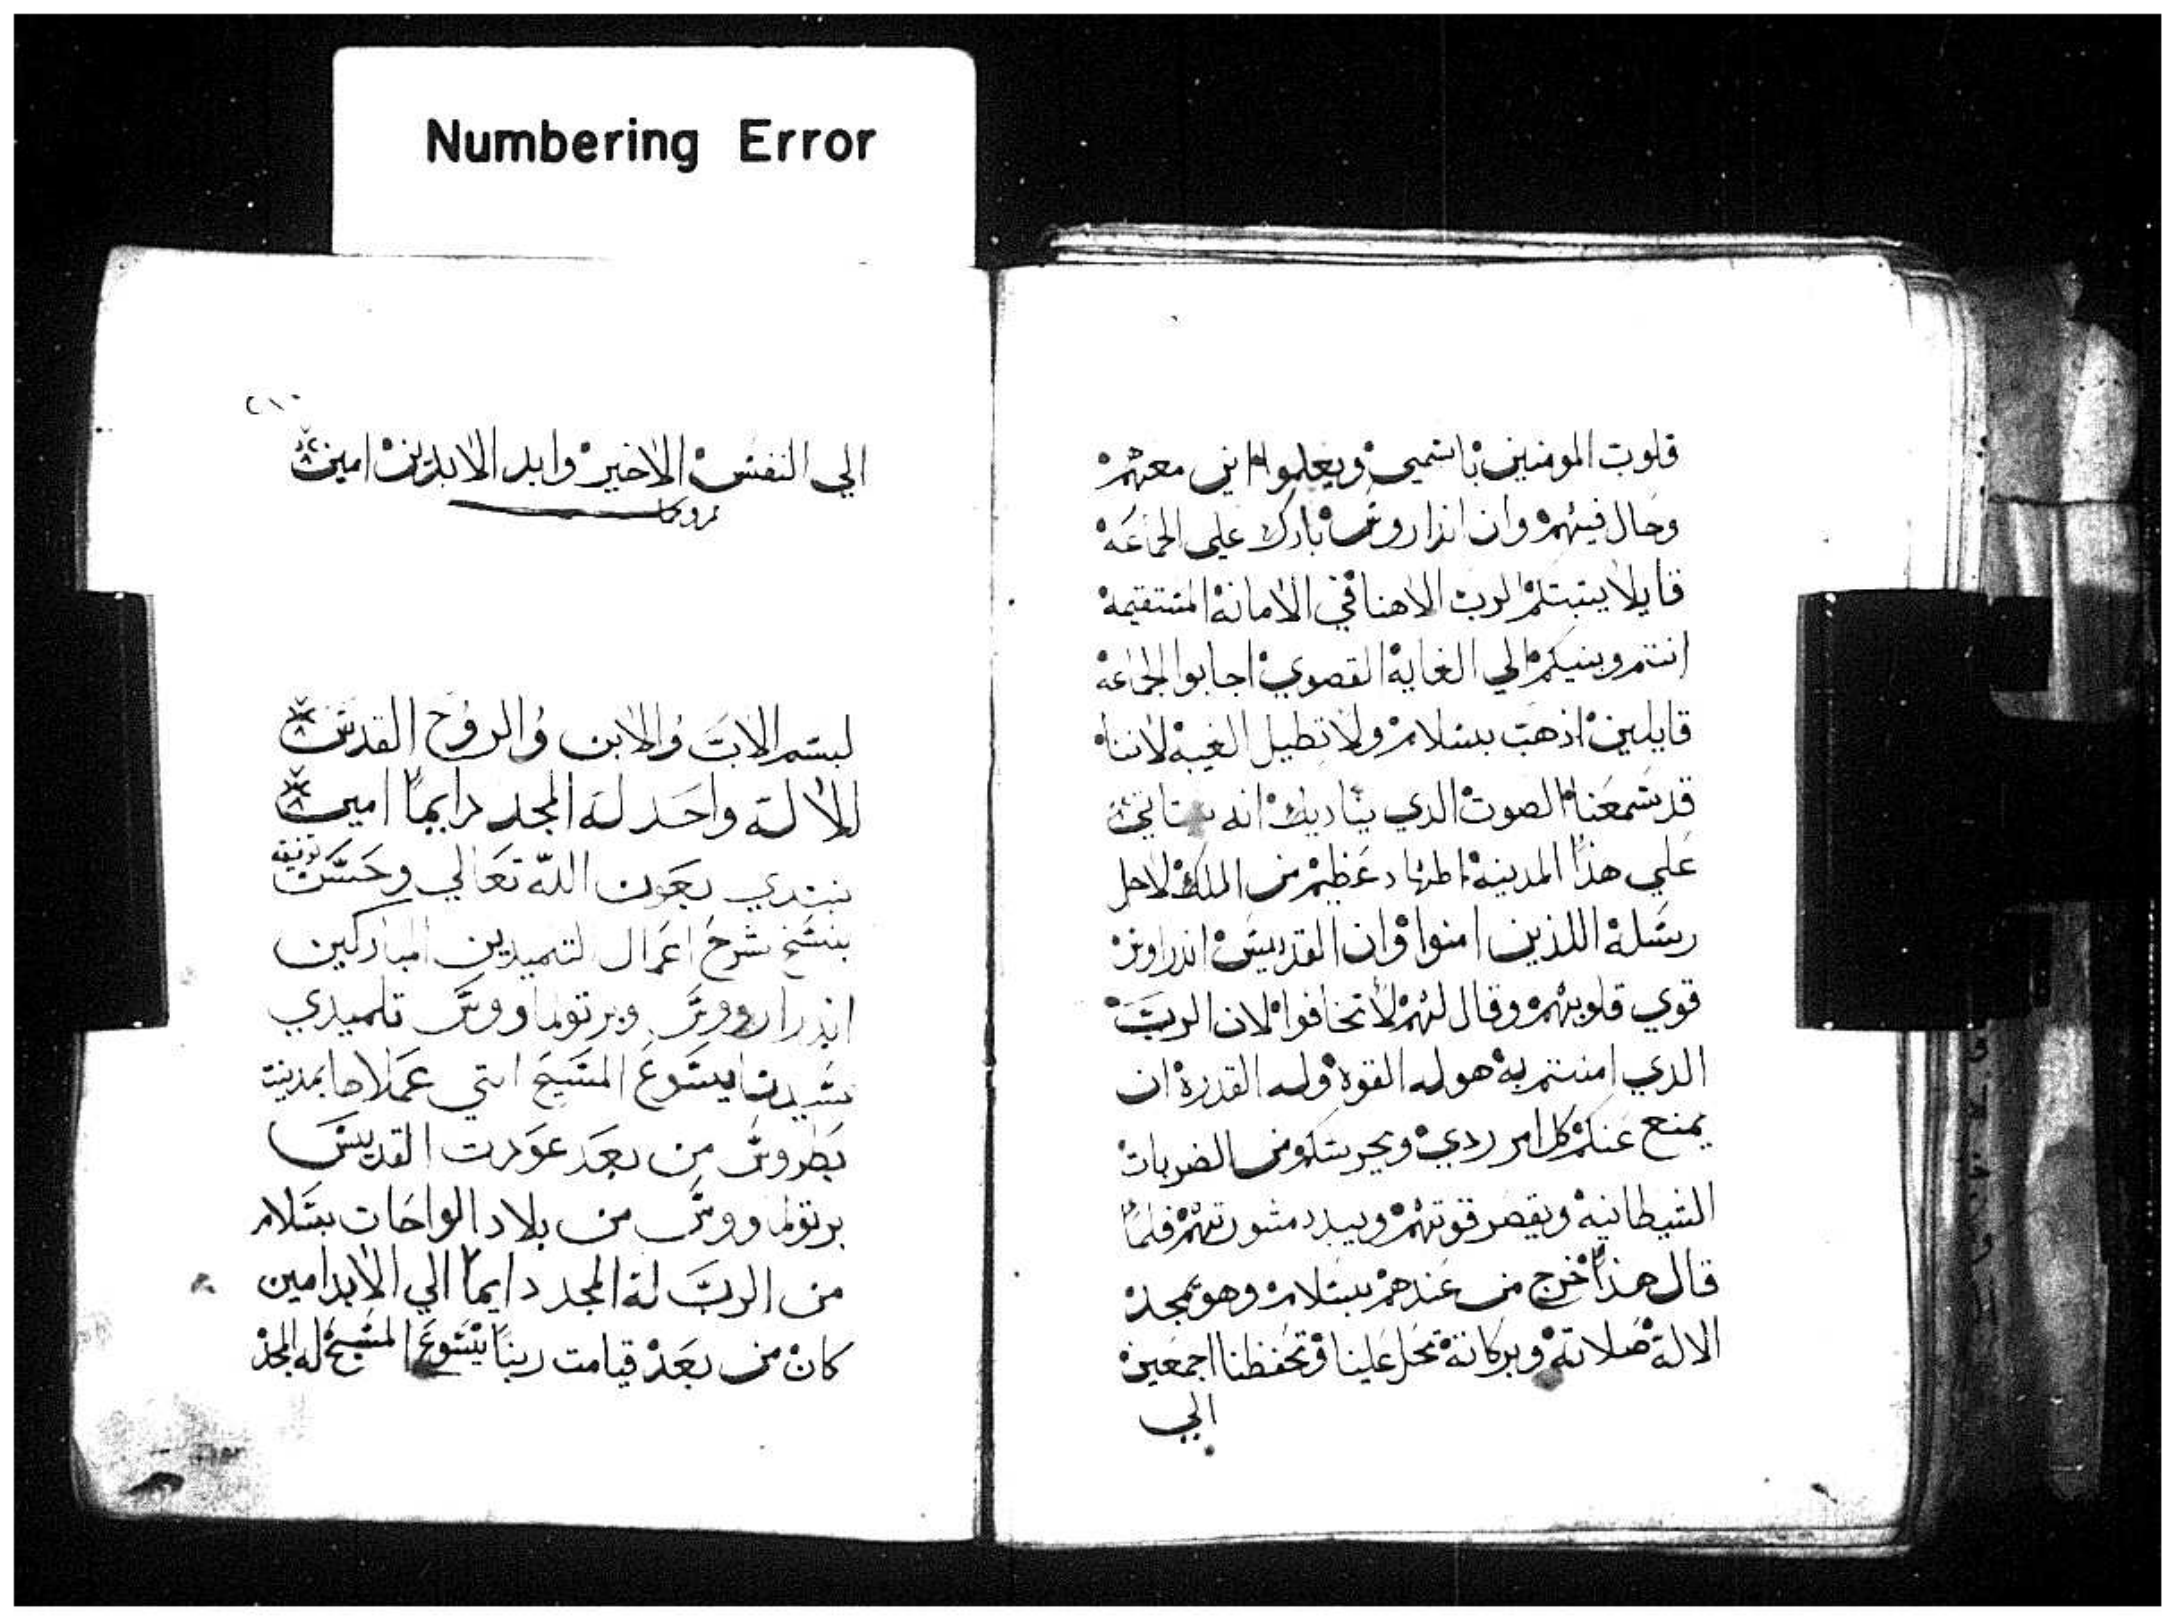 Numbering Error
قلوب المومنين باسمي ويعلموا اني معهم
وحال فيهم وان اندراوس بارك علي الجماعه
قايلا يتبتكم الرب الاهنا في الامانة المستقيمة
انتم وبنيكم الي الغاية القصوي اجابوا الجماعة
قايلين اذهب بسلام ولا تطيل الغيبة لاننا
قد سمعنا الصوت الدي يناديك انه سياتي
علي هذا المدينة اظهاد عظيم من الملك لاجل
رسله اللذين امنوا وان القديس اندراوس
قوي قلوبهم وقال لهم لا تخافوا لان الرب
الدي امنتم به هو له القوة وله القدرة ان
يمنع عنكم كل امر ردي ويحرستكم من الضربات
الشيطانية ويقصر قوتهم ويبدد مشورتهم فلما
قال هذا خرج من عندهم بسلام وهو يمجد
الالة صلاتة وبركاتة تحل علينا وتحفظنا اجمعين
الي
٢١٠
الي النفس الاخير وابد الابدين امين
لبسم الاب والابن والروح القدس
الالة واحد لة المجد دايما امين
نبتدي بعون الله تعالي وحسن توفيقه
بنسخ شرح اعمال التميدين المباركين
اندراووس وبرتولماووس تلميدي
سيدنا يسوع المسيح التي عملاها بمدينت
بطروس من بعد عودت القديس
برتولماووس من بلاد الواحات بسلام
من الرب لة المجد دايما الي الابد امين
كان من بعد قيامت ربنا يسوع المسيح له المجد